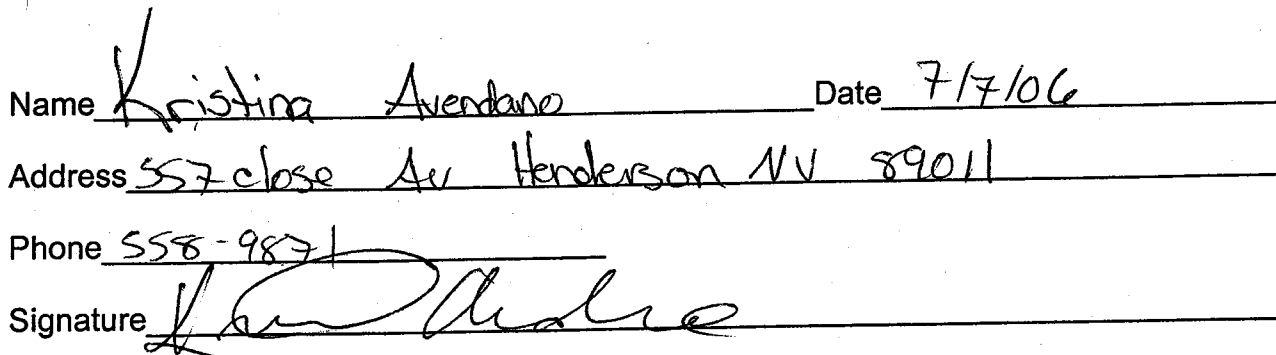 Name Kristina Avendano Date 7/7/06
Address 557 close Av Henderson NV 89011
Phone 558-9871
Signature